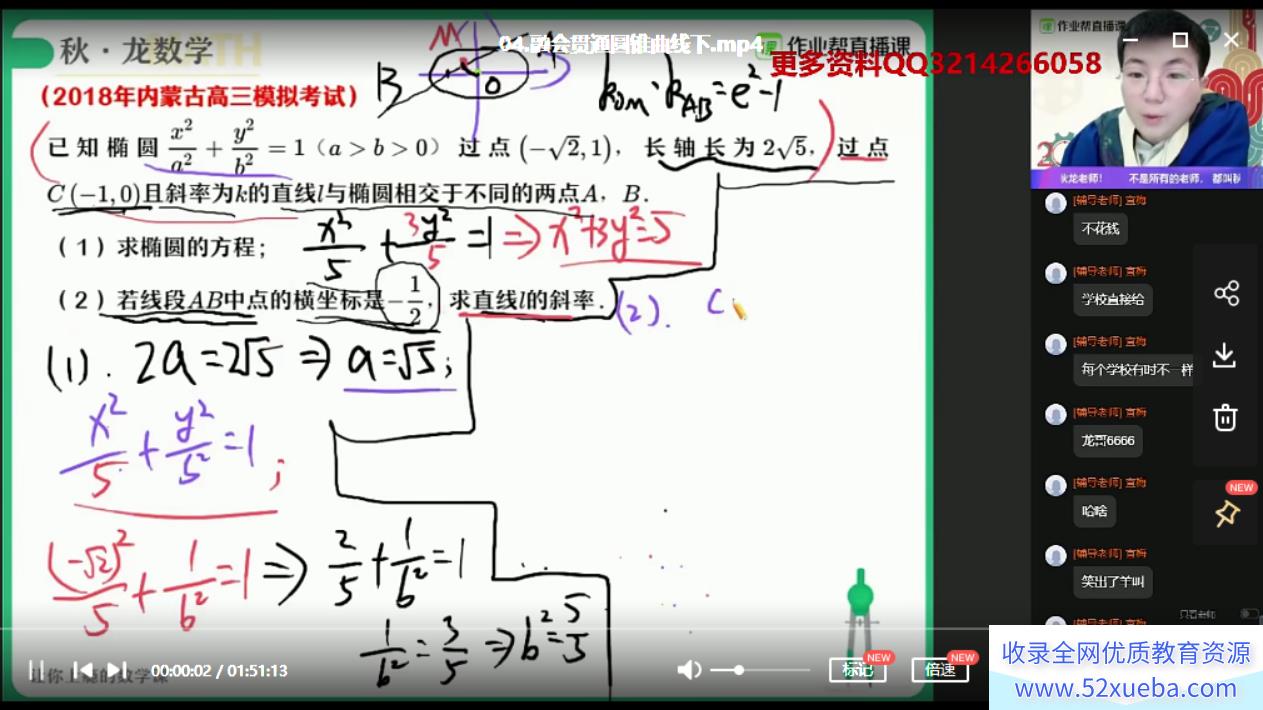 秋·龙数学
04.融会贯通圆锥曲线下.mp4
作业帮直播课
更多资料QQ3214266058
作业帮直播课
(2018年内蒙古高三模拟考试)
B
M
O
A
k_{OM}·k_{AB}=e²-1
已知椭圆 x²/a² + y²/b² = 1 (a > b > 0) 过点 (-√2, 1), 长轴长为 2√5, 过点
C(-1, 0)且斜率为k的直线l与椭圆相交于不同的两点A, B.
(1) 求椭圆的方程;
x²/5 + 3y²/5 = 1 ⇒ x²+3y²=5
(2) 若线段AB中点的横坐标是 -1/2, 求直线l的斜率.
(2). (
(1). 2a=2√5 ⇒ a=√5;
x²/5 + y²/b² = 1;
(-√2)²/5 + 1/b² = 1 ⇒ 2/5 + 1/b² = 1
1/b² = 3/5 ⇒ b² = 5/3
让你上瘾的数学课
00:00:02 / 01:51:13
标记
NEW
倍速
NEW
秋龙老师! 不是所有的老师, 都叫秋
[辅导老师] 宣梅
不花钱
[辅导老师] 宣梅
学校直接给
[辅导老师] 宣梅
每个学校有时不一样
[辅导老师] 宣梅
龙哥6666
[辅导老师] 宣梅
哈啥
NEW
[辅导老师] 宣梅
笑出了羊叫
只看老师
[辅导老师] 宣梅
收录全网优质教育资源
www.52xueba.com